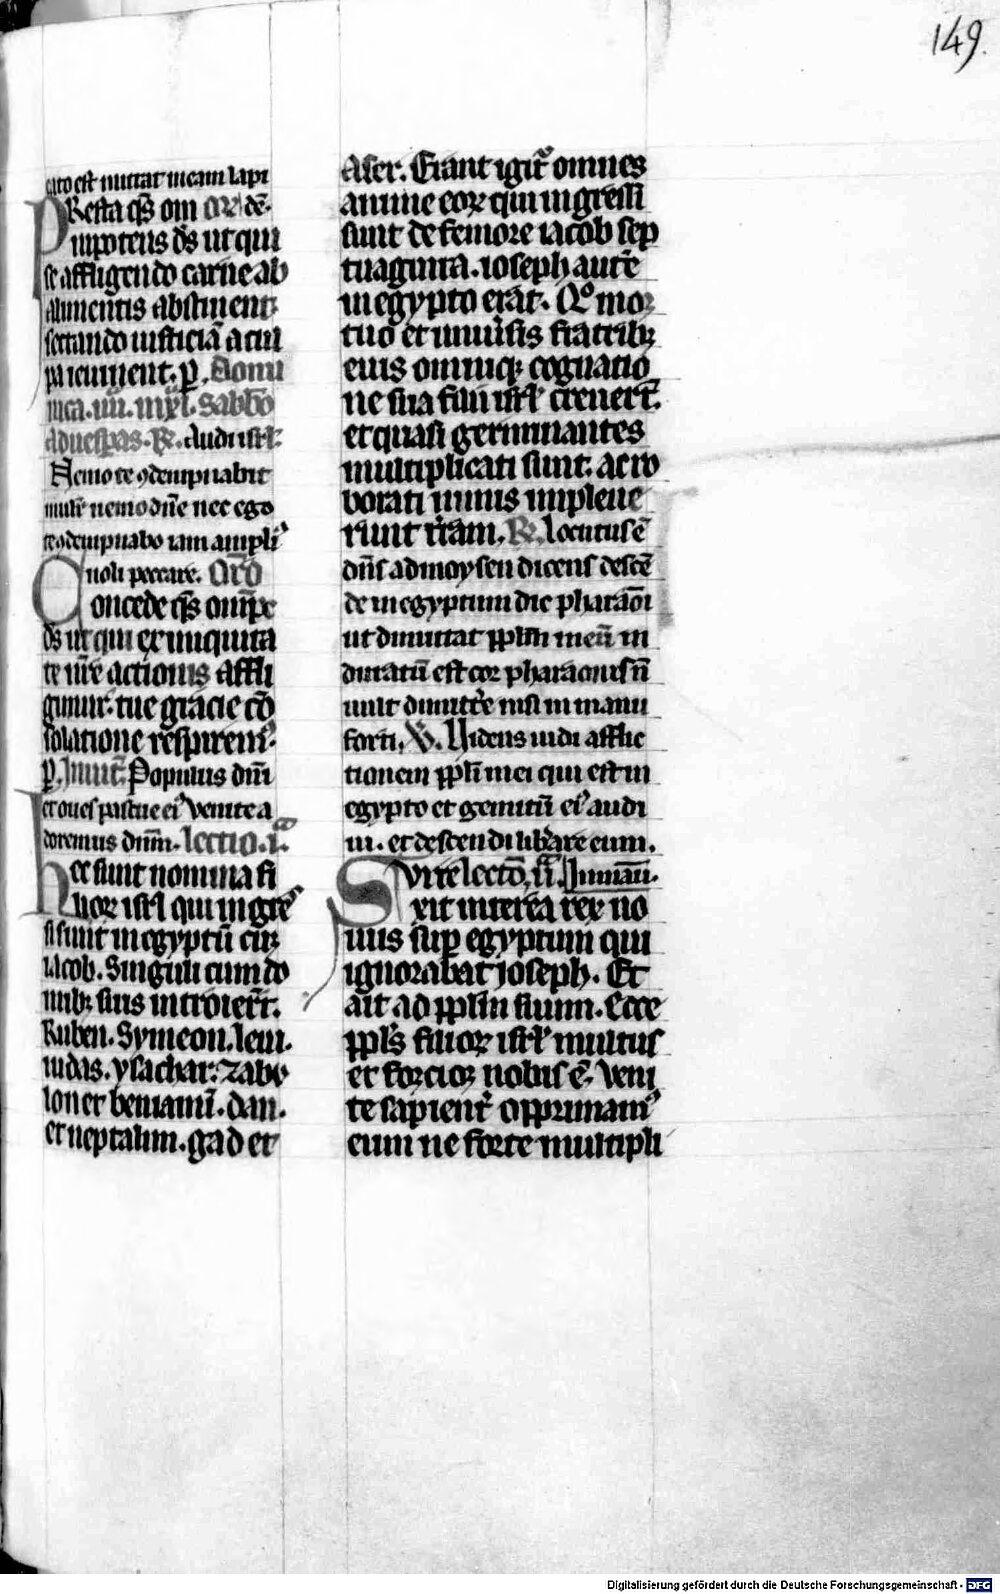 149.
cato est mittat in eam lapi
PResta qs̄ om̄ or̄o dē.
nipotens ds̄ ut qui
se affligendo carne ab
alimentis abstinent
sectando iusticiā a cul
pa ieiunent. p. Domi
nica. iiii. mxl̄. Sabb̄o
ad uesp̄as. R̄. Audi isrl̄.
Nemo te ꝯdempnabit
mulr̄ nemo dn̄e nec ego
te ꝯdempnabo iam ampliꝰ
noli peccare. Or̄o
Concede qs̄ omp̄c
ds̄ ut qui ex iniquita
te nr̄e actionis affli
gimur. tue gracie cō
solatione respiremꝰ.
p. Inuit̄. Populus dn̄i
et oues pascue eiꝰ venite a
doremus dn̄m. lectio. i.ᵃ
hec sunt nomina fi
lioꝝ isrl̄ qui ingres
si sunt in egyptū cū
iacob. Singuli cum do
mibꝫ suis introier̄t.
Ruben. Symeon. leui.
iudas. ysachar. zabu
lon et beniamī. dan.
et neptalim. gad et
Aser. Erant igit̄ omnes
anime eoꝝ qui ingressi
sunt de femore iacob sep
tuaginta. ioseph autē
in egypto erat. Qͦ mor
tuo et uniūsis fratribꝫ
eius omniqꝫ cognatio
ne sua filii isrl̄ creuer̄t.
et quasi germinantes
multiplicati sunt. ac ro
borati nimis impleue
runt tr̄am. R̄. locutus ē
dn̄s ad moysen dicens descē
de in egyptum dic pharaoni
ut dimittat pplm̄ meū in
duratū est cor pharaonis n̄
uult dimitte nisi in manu
forti. V̄. Videns uidi afflic
tionem ppl̄i mei qui est in
egypto et gemitū eiꝰ audi
ui. et descendi libare eum.
Surre lectō. ii.ᵃ
xit interea rex no
uus sup egyptum qui
ignorabat ioseph. Et
ait ad pplm̄ suum. Ecce
ppls̄ filioꝝ isrl̄ multus
et forcior nobis ē. Veni
te sapient̄ opprimamꝰ
eum ne forte multipli
Digitalisierung gefördert durch die Deutsche Forschungsgemeinschaft - DFG